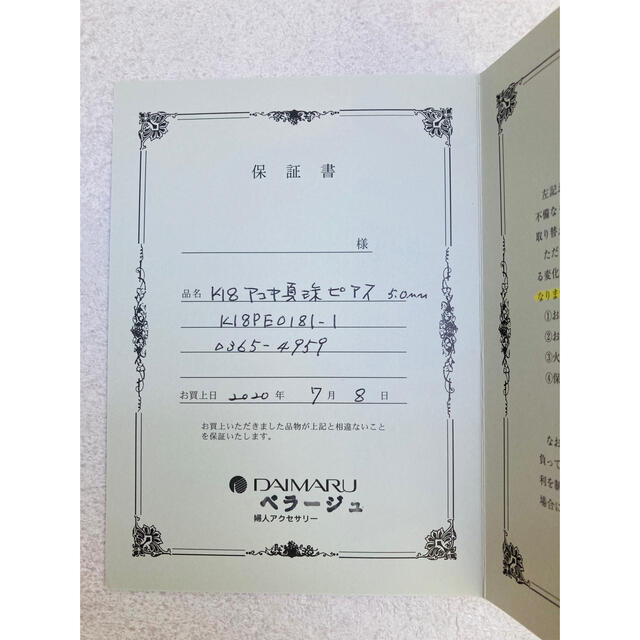 保証書
様
品名 K18 アコヤ真珠ピアス 5.0mm
K18PE0181-1
0365-4959
お買上日 2020年 7月 8日
お買上いただきました品物が上記と相違ないこと
を保証いたします。
DAIMARU
ベラージュ
婦人アクセサリー
左記お
不備な
取り替え
ただ
る変化
なりま
①お
②お
③火
④保
なお
負って
利を制
場合に